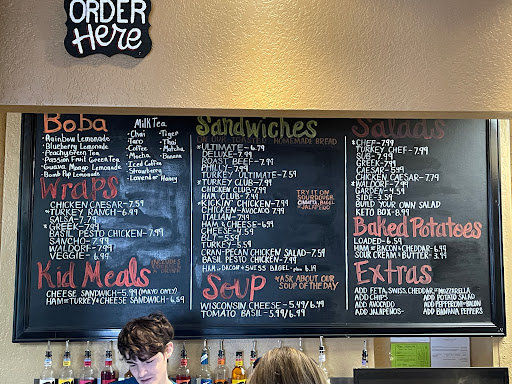 ORDER
Here
Boba
Milk Tea
• Rainbow Lemonade
• Blueberry Lemonade
• Peachy Green Tea
• Passion Fruit Green Tea
• Guava Mango Lemonade
• Bomb Pop Lemonade
• Chai
• Taro
• Coffee
• Mocha
• Iced Coffee
• Strawberry
• Lavender Honey
• Tiger
• Thai
• Matcha
• Banana
Wraps
CHICKEN CAESAR-7.59
*TURKEY RANCH-6.99
SALSA-7.79
*GREEK-7.99
BASIL PESTO CHICKEN-7.99
SANCHO-7.99
WALDORF-7.99
VEGGIE-6.99
Kid Meals
INCLUDES
CHEESE SANDWICH-5.99 (MAYO ONLY)
HAM or TURKEY & CHEESE SANDWICH-6.59
Sandwiches
HOMEMADE BREAD
*ULTIMATE-6.79
DELUXE-7.99
ROAST BEEF-7.99
PHILLY-7.99
TURKEY ULTIMATE-7.59
*TURKEY CLUB-7.99
CHICKEN CLUB-7.99
HAM CLUB-7.99
*KICKIN' CHICKEN-7.99
CHICKEN-AVOCADO 7.99
ITALIAN-7.99
HAM & CHEESE-6.99
CHEESE-4.59
BLT-5.99
TURKEY-6.59
CRAN-PECAN CHICKEN SALAD-7.59
BASIL PESTO CHICKEN-7.99
HAM or BACON & SWISS BAGEL-plus 6.49
TRY IT ON
SOURDOUGH
CIABATTA, BAGEL
JALAPEÑO
Soup
*ASK ABOUT OUR
SOUP OF THE DAY
WISCONSIN CHEESE-5.49/6.99
TOMATO BASIL-5.49/6.99
Salads
*CHEF-7.99
TURKEY CHEF-7.99
SUB-7.99
GREEK-7.99
CAESAR-5.99
CHICKEN CAESAR-7.99
*WALDORF-7.99
GARDEN-4.59
SIDE-3.59
BUILD YOUR OWN SALAD
KETO BOX-8.99
Baked Potatoes
LOADED-6.59
HAM or BACON & CHEDDAR-6.99
SOUR CREAM & BUTTER-3.99
Extras
ADD FETA, SWISS, CHEDDAR, or MOZZARELLA
ADD CHIPS
ADD AVOCADO
ADD JALAPEÑOS
ADD POTATO SALAD
ADD PEPPERONI or BACON
ADD BANANA PEPPERS